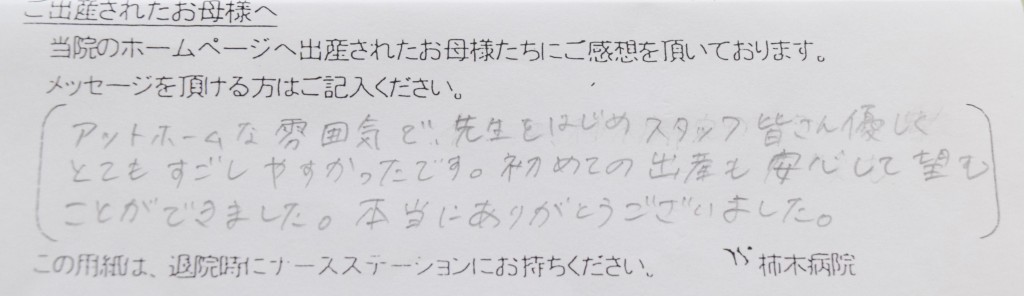 ご出産されたお母様へ
当院のホームページへ出産されたお母様たちにご感想を頂いております。
メッセージを頂ける方はご記入ください。
アットホームな雰囲気で、先生をはじめスタッフ皆さん優しく
とてもすごしやすかったです。初めての出産も安心して望む
ことができました。本当にありがとうございました。
この用紙は、退院時にナースステーションにお持ちください。 柿木病院